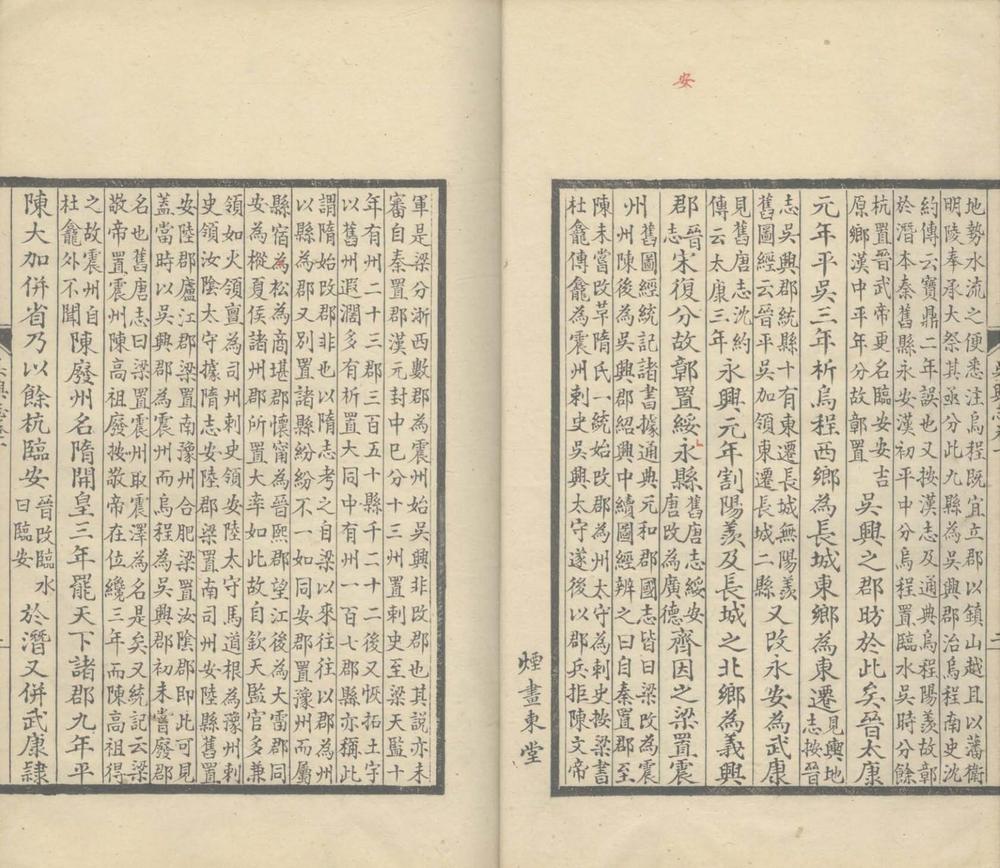 安
地勢水流之便悉注烏程既宜立郡以鎮山越且以藩衛
明陵奉承大祭其亟分此九縣為吳興郡治烏程南史沈
約傳云寶鼎二年誤也又按漢志及通典烏程陽羨故鄣
於潛本秦舊縣永安漢初平中分烏程置臨水吳時分餘
杭置晉武帝更名臨安安吉
原鄉漢中平年分故鄣置
吳興之郡昉於此矣晉太康
元年平吳三年析烏程西鄉為長城東鄉為東遷
見輿地
志按晉
志吳興郡統縣十有東遷長城無陽羨
舊圖經云晉平吳加領東遷長城二縣
又改永安為武康
見舊唐志沈約
傳云太康三年
永興元年割陽羨及長城之北鄉為義興
郡
晉
志
宋復分故鄣置綏永縣
舊唐志綏安
唐改為廣德
齊因之梁置震
州
舊圖經統記諸書據通典元和郡國志皆曰梁改為震
州陳後為吳興郡紹興中續圖經辨之曰自秦置郡至
陳未嘗改革隋氏一統始改郡為州太守為刺史按梁書
杜龕傳龕為震州刺史吳興太守遂後以郡兵拒陳文帝
煙畫東堂
軍是梁分浙西數郡為震州始吳興非改郡也其說亦未
審自秦置郡漢元封中已分十三州置刺史至梁天監十
年有州二十三郡三百五十縣千二十二後又恢拓土宇
以舊州遐濶多有析置大同中有州一百七郡縣亦稱此
謂隋始改郡非也以隋志考之自梁以來往往以郡為州
以縣為郡又別置諸縣紛紛不一如同安郡置豫州而屬
縣宿為松為商堪郡懷甯為晉熙郡望江後為大雷郡同
安為樅夏侯諸州郡所置大率如此故自欽天監官多兼
領如火領亶為司州刺史領安陸太守馬道根為豫州刺
史領汝陰太守據隋志安陸郡梁置南司州安陸縣舊置
安陸郡廬江郡梁置南豫州合肥梁置汝陰郡即此可見
蓋當時以吳興郡為震州而烏程為吳興郡初未嘗廢郡
名也舊唐志曰梁置震州取震澤為名是矣又統記云梁
敬帝置震州陳高祖廢按敬帝在位纔三年而陳高祖得
之故震州自
杜龕外不聞
陳廢州名隋開皇三年罷天下諸郡九年平
陳大加併省乃以餘杭臨安
晉改臨水
曰臨安
於潛又併武康隸